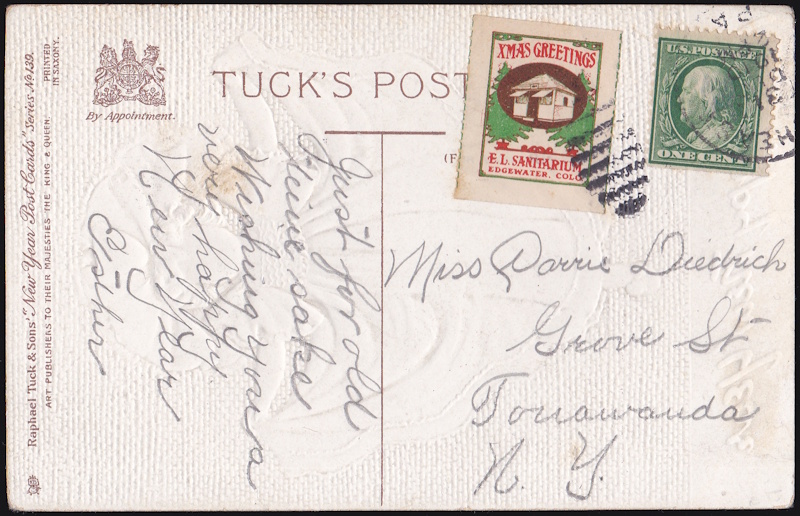 Raphael Tuck & Sons' "New Year Post Cards" Series No 139.
ART PUBLISHERS TO THEIR MAJESTIES THE KING & QUEEN.
PRINTED
IN SAXONY.
By Appointment.
TUCK'S POST
(F
XMAS GREETINGS
E.L. SANITARIUM
EDGEWATER, COLO
U.S. POSTAGE
ONE CENT
Just for old
time sake
Wishing you a
very happy
New Year
Esther
Miss Dorrie Diedrich
Grove St
Tonawanda
N. Y.